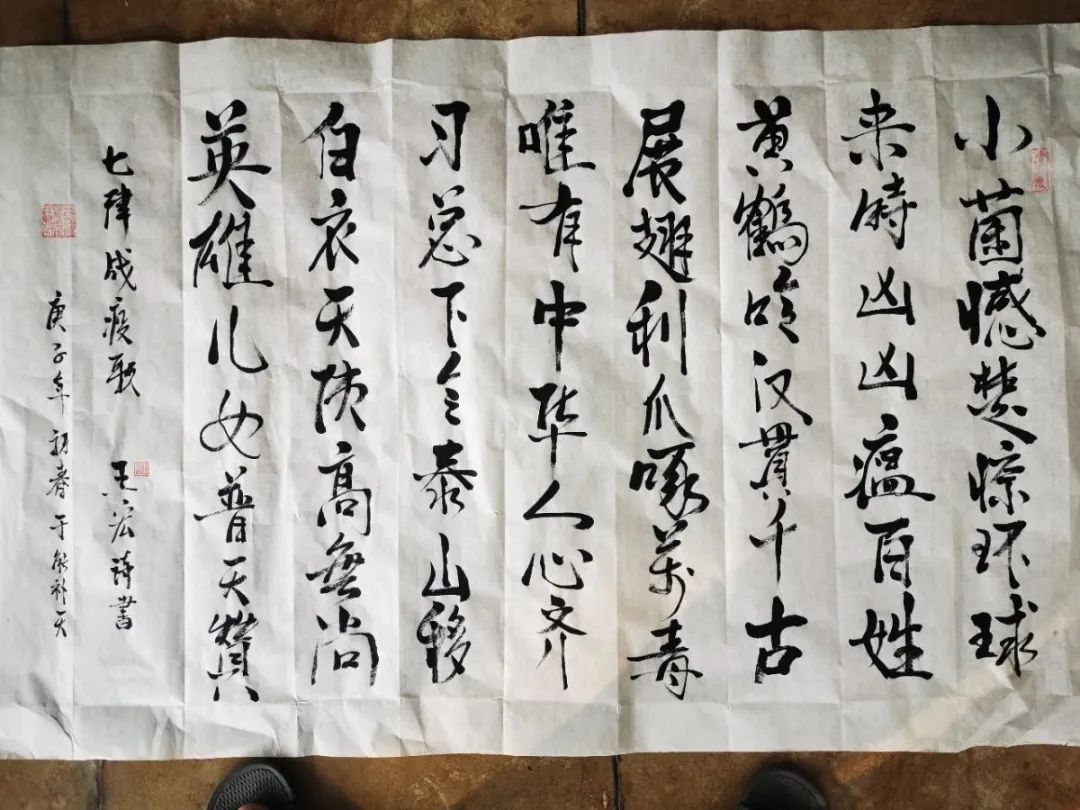 小菌憾楚惊环球
来时凶凶瘟百姓
黄鹤吟汉贯千古
展翅利爪啄万毒
唯有中华人心齐
习总下令泰山移
白衣天使高無尚
英雄儿女普天赞
七律战疫歌 王宏诗书
庚子年初春于